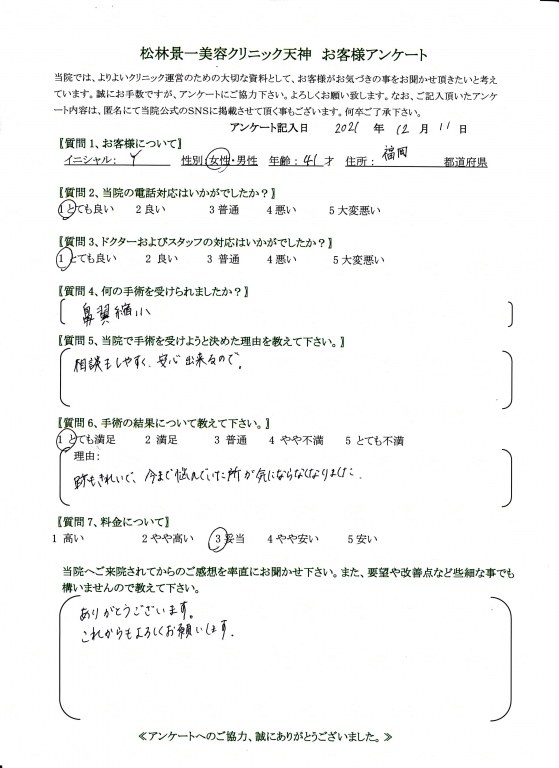 松林景一美容クリニック天神　お客様アンケート
当院では、よりよいクリニック運営のための大切な資料として、お客様がお気づきの事をお聞かせ頂きたいと考え
ています。誠にお手数ですが、アンケートにご協力下さい。よろしくお願い致します。なお、ご記入頂いたアンケ
ート内容は、匿名にて当院公式のSNSに掲載させて頂く事もございます。何卒ご了承下さい。
アンケート記入日　2021　年　12　月　11　日
〖質問1、お客様について〗
イニシャル：　Y　性別：女性・男性　年齢：41才　住所：　福岡　都道府県
〖質問2、当院の電話対応はいかがでしたか？〗
1 とても良い　2 良い　3 普通　4 悪い　5 大変悪い
〖質問3、ドクターおよびスタッフの対応はいかがでしたか？〗
1 とても良い　2 良い　3 普通　4 悪い　5 大変悪い
〖質問4、何の手術を受けられましたか？〗
鼻翼縮小
〖質問5、当院で手術を受けようと決めた理由を教えて下さい。〗
相談もしやすく、安心出来るので。
〖質問6、手術の結果について教えて下さい。〗
1 とても満足　2 満足　3 普通　4 やや不満　5 とても不満
理由：
跡もきれいで、今まで悩んでいた所が気にならなくなりました。
〖質問7、料金について〗
1 高い　2 やや高い　3 妥当　4 やや安い　5 安い
当院へご来院されてからのご感想を率直にお聞かせ下さい。また、要望や改善点など些細な事でも
構いませんので教えて下さい。
ありがとうございます。
これからもよろしくお願いします。
≪アンケートへのご協力、誠にありがとうございました。≫